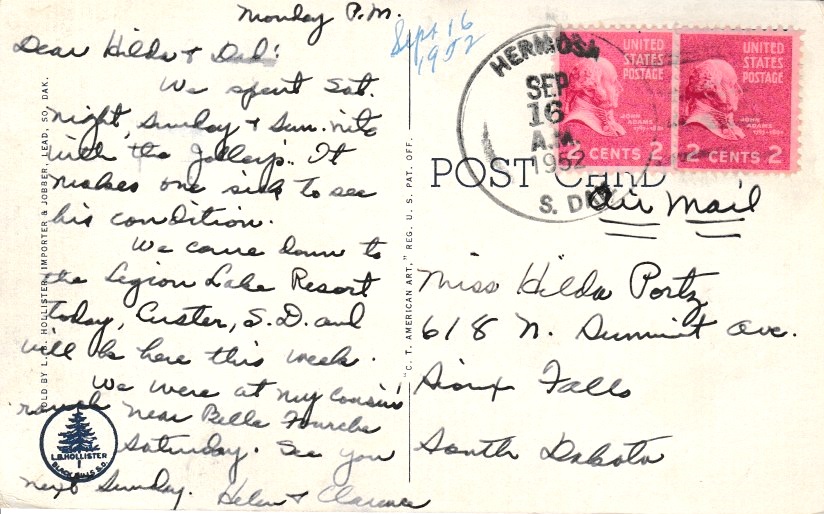 Monday P.M.
Sept 16
1952
Dear Hilda & Dad:
We spent Sat.
night, Sunday & Sun. nite
with the Jolley's. It
makes one sick to see
his condition.
We came down to
the Legion Lake Resort
today, Custer, S.D. and
will be here this week.
We were at my cousin's
ranch near Belle Fourche
Saturday. See you
next Sunday. Helen & Clarence
SOLD BY L. B. HOLLISTER, IMPORTER & JOBBER, LEAD, SO. DAK.
L.B. HOLLISTER
BLACK HILLS S.D.
"C. T. AMERICAN ART," REG. U. S. PAT. OFF.
HERMOSA
SEP
16
A.M.
1952
S. DAK
UNITED
STATES
POSTAGE
JOHN
ADAMS
CENTS 2
UNITED
STATES
POSTAGE
JOHN
ADAMS
2 CENTS 2
POST CARD
Air Mail
Miss Hilda Portz
618 N. Summit Ave.
Sioux Falls
South Dakota